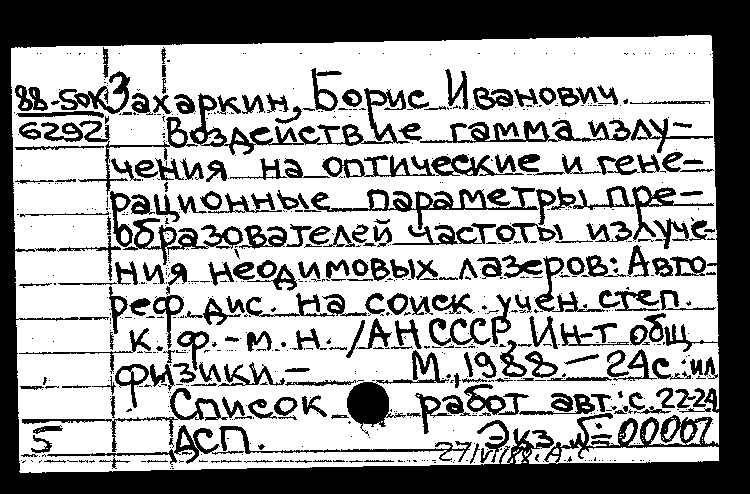 88-50К Захаркин, Борис Иванович.
6292 Воздействие гамма излу-
чения на оптические и гене-
рационные параметры пре-
образователей частоты излуче-
ния неодимовых лазеров: Авто-
реф. дис. на соиск. учен. степ.
к. ф.-м. н. /АН СССР, Ин-т общ.
физики.- М., 1988.- 24с.:ил
Список работ авт.: с. 22-24
5 ДСП. Экз. № 00007
27/VII/88.